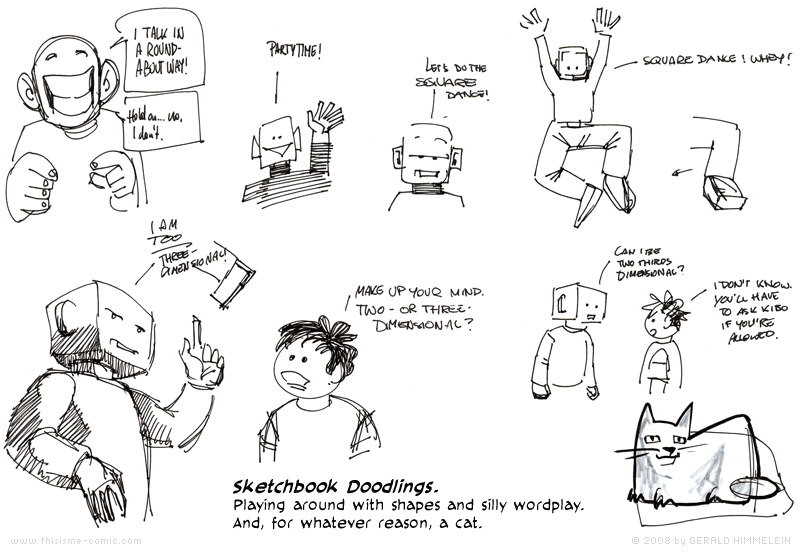 I TALK IN
A ROUND-
ABOUT WAY!
Hold on... no,
I don't.
PARTYTIME!
LET'S DO THE
SQUARE
DANCE!
SQUARE DANCE! WHEY!
I AM
TOO
THREE-
DIMENSIONAL!
MAKE UP YOUR MIND.
TWO- OR THREE-
DIMENSIONAL?
CAN I BE
TWO THIRDS
DIMENSIONAL?
I DON'T KNOW.
YOU'LL HAVE
TO ASK KIBO
IF YOU'RE
ALLOWED.
Sketchbook Doodlings.
Playing around with shapes and silly wordplay.
And, for whatever reason, a cat.
www.thisisme-comic.com
© 2008 by GERALD HIMMELEIN